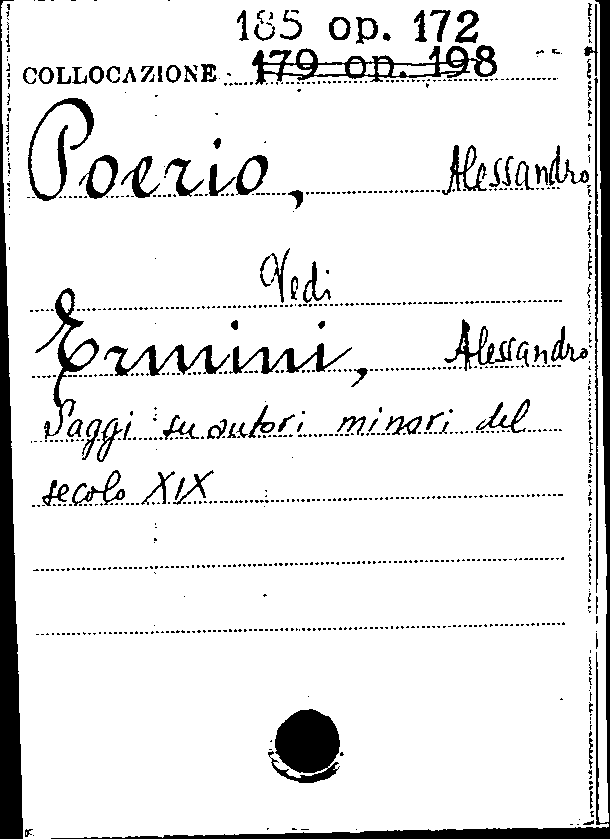 185 op. 172
COLLOCAZIONE 179 op. 198
Poerio, Alessandro
Vedi
Ermini, Alessandro
Saggi su autori minori del
secolo XIX